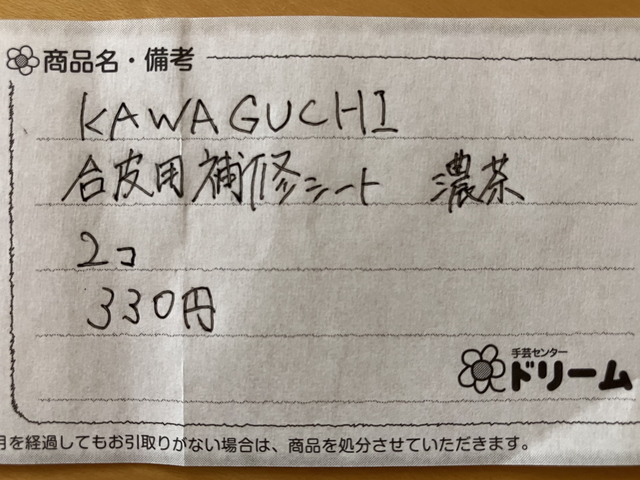 商品名・備考
KAWAGUCHI
合皮用補修シート 濃茶
2コ
330円
手芸センター
ドリーム
月を経過してもお引取りがない場合は、商品を処分させていただきます。